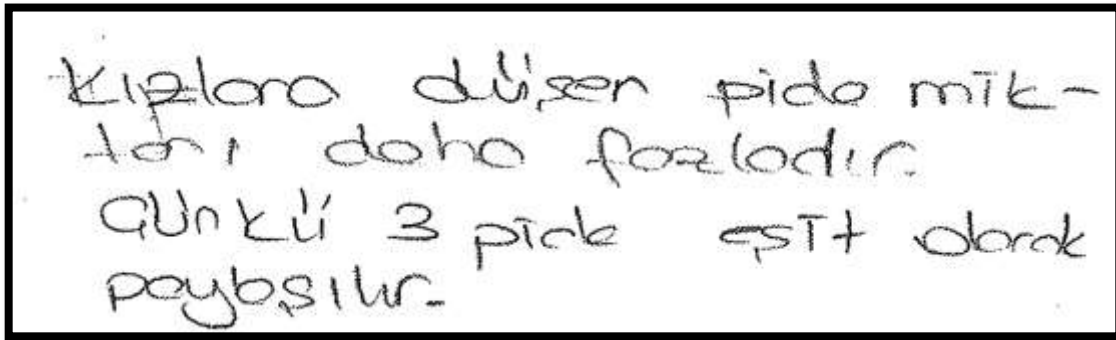 Kızlara düşen pide mik-
tarı daha fazladır.
Günkü 3 pide eşit olarak
paylaşılır.